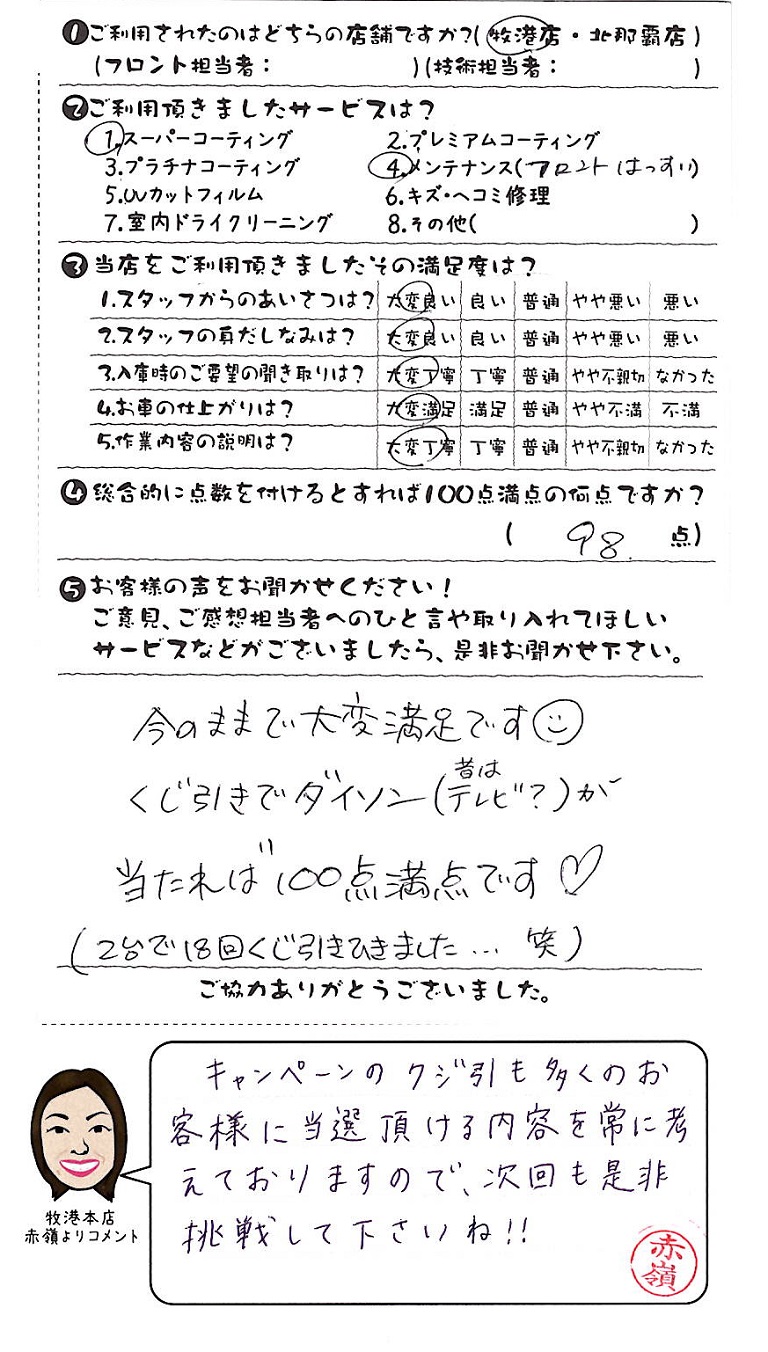 ❶ご利用されたのはどちらの店舗ですか?(牧港店・北那覇店)
(フロント担当者: )(技術担当者: )
❷ご利用頂きましたサービスは?
1.スーパーコーティング 2.プレミアムコーティング
3.プラチナコーティング 4.メンテナンス(フロントはっすい)
5.UVカットフィルム 6.キズ・ヘコミ修理
7.室内ドライクリーニング 8.その他( )
❸当店をご利用頂きましたその満足度は?
1.スタッフからのあいさつは? 大変良い 良い 普通 やや悪い 悪い
2.スタッフの身だしなみは? 大変良い 良い 普通 やや悪い 悪い
3.入庫時のご要望の聞き取りは? 大変丁寧 丁寧 普通 やや不親切 なかった
4.お車の仕上がりは? 大変満足 満足 普通 やや不満 不満
5.作業内容の説明は? 大変丁寧 丁寧 普通 やや不親切 なかった
❹総合的に点数を付けるとすれば100点満点の何点ですか?
( 98. 点)
❺お客様の声をお聞かせください!
ご意見、ご感想担当者へのひと言や取り入れてほしい
サービスなどがございましたら、是非お聞かせ下さい。
今のままで大変満足です☺
くじ引きでダイソン(昔はテレビ?)が
当たれば100点満点です♡
(2台で18回くじ引きひきました… 笑)
ご協力ありがとうございました。
キャンペーンのクジ引も多くのお
客様に当選頂ける内容を常に考
えておりますので、次回も是非
挑戦して下さいね!!
牧港本店
赤嶺よりコメント
赤嶺